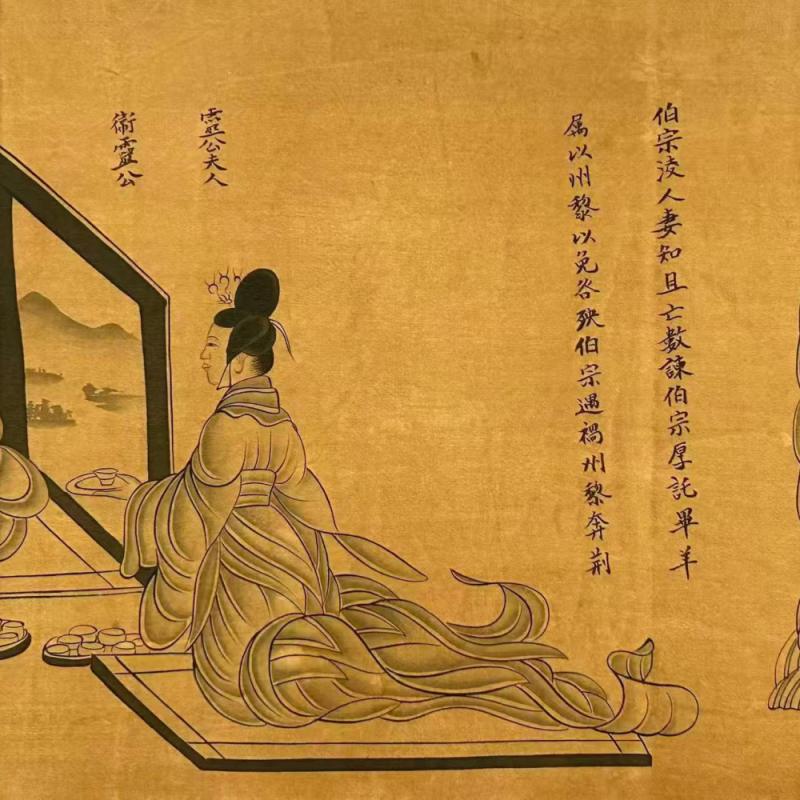 伯宗淩人妻知且亡數諫伯宗厚託畢羊
属以州黎以免咎殃伯宗遇禍州黎奔荆
靈公夫人
衞靈公